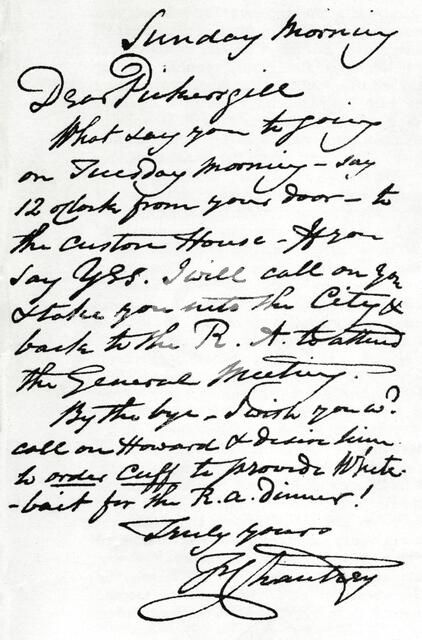 Sunday Morning
Dear Pickersgill
What say you to going
on Tuesday Morning - say
12 oClock from your door - to
the Custom House - If you
say YES. I will call on you
& take you into the City &
back to the R. A. to attend
the General Meeting.
By the bye - I wish you wd.
call on Howard & desire him
to order Cuff to provide White-
-bait for the R.A. dinner!
Truly yours
F Chantrey